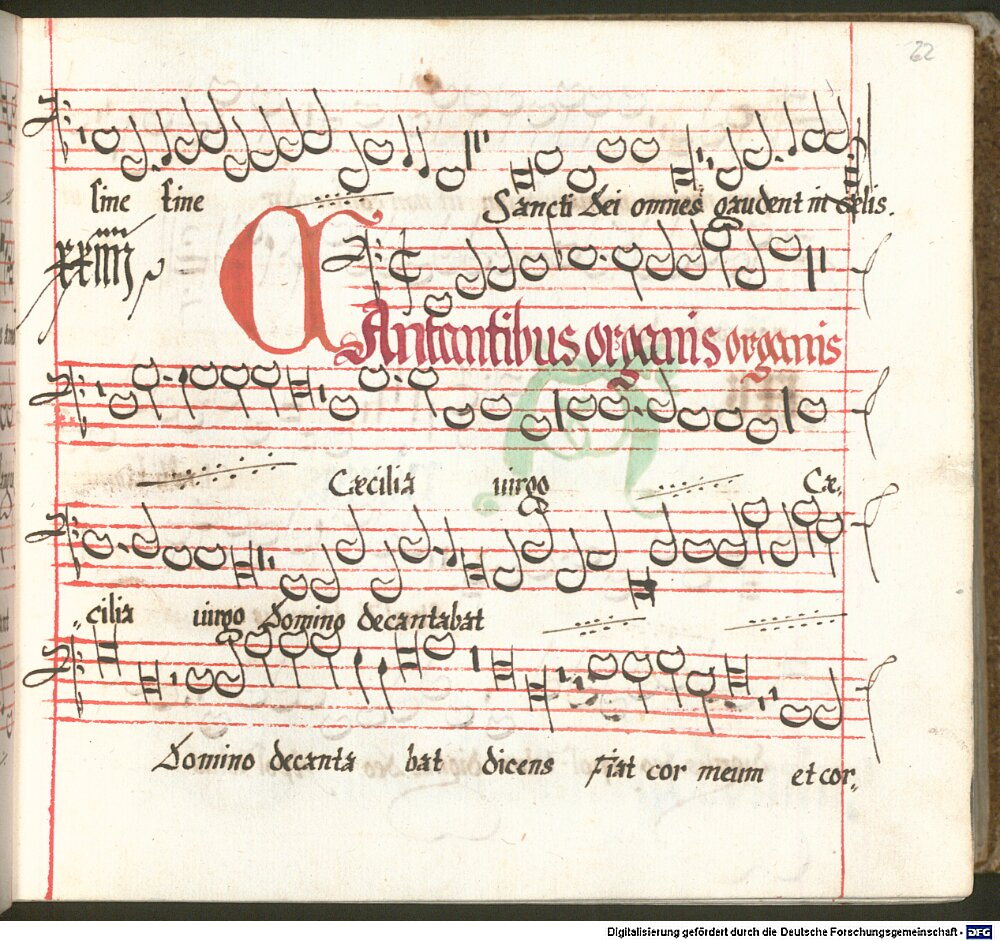 22
sine fine Sancti Dei omnes gaudent in cœlis.
xxiiij
CAntantibus organis organis
Cæcilia uirgo Cæ,
„cilia uirgo Domino decantabat
Domino decanta bat dicens Fiat cor meum et cor„
Digitalisierung gefördert durch die Deutsche Forschungsgemeinschaft - DFG